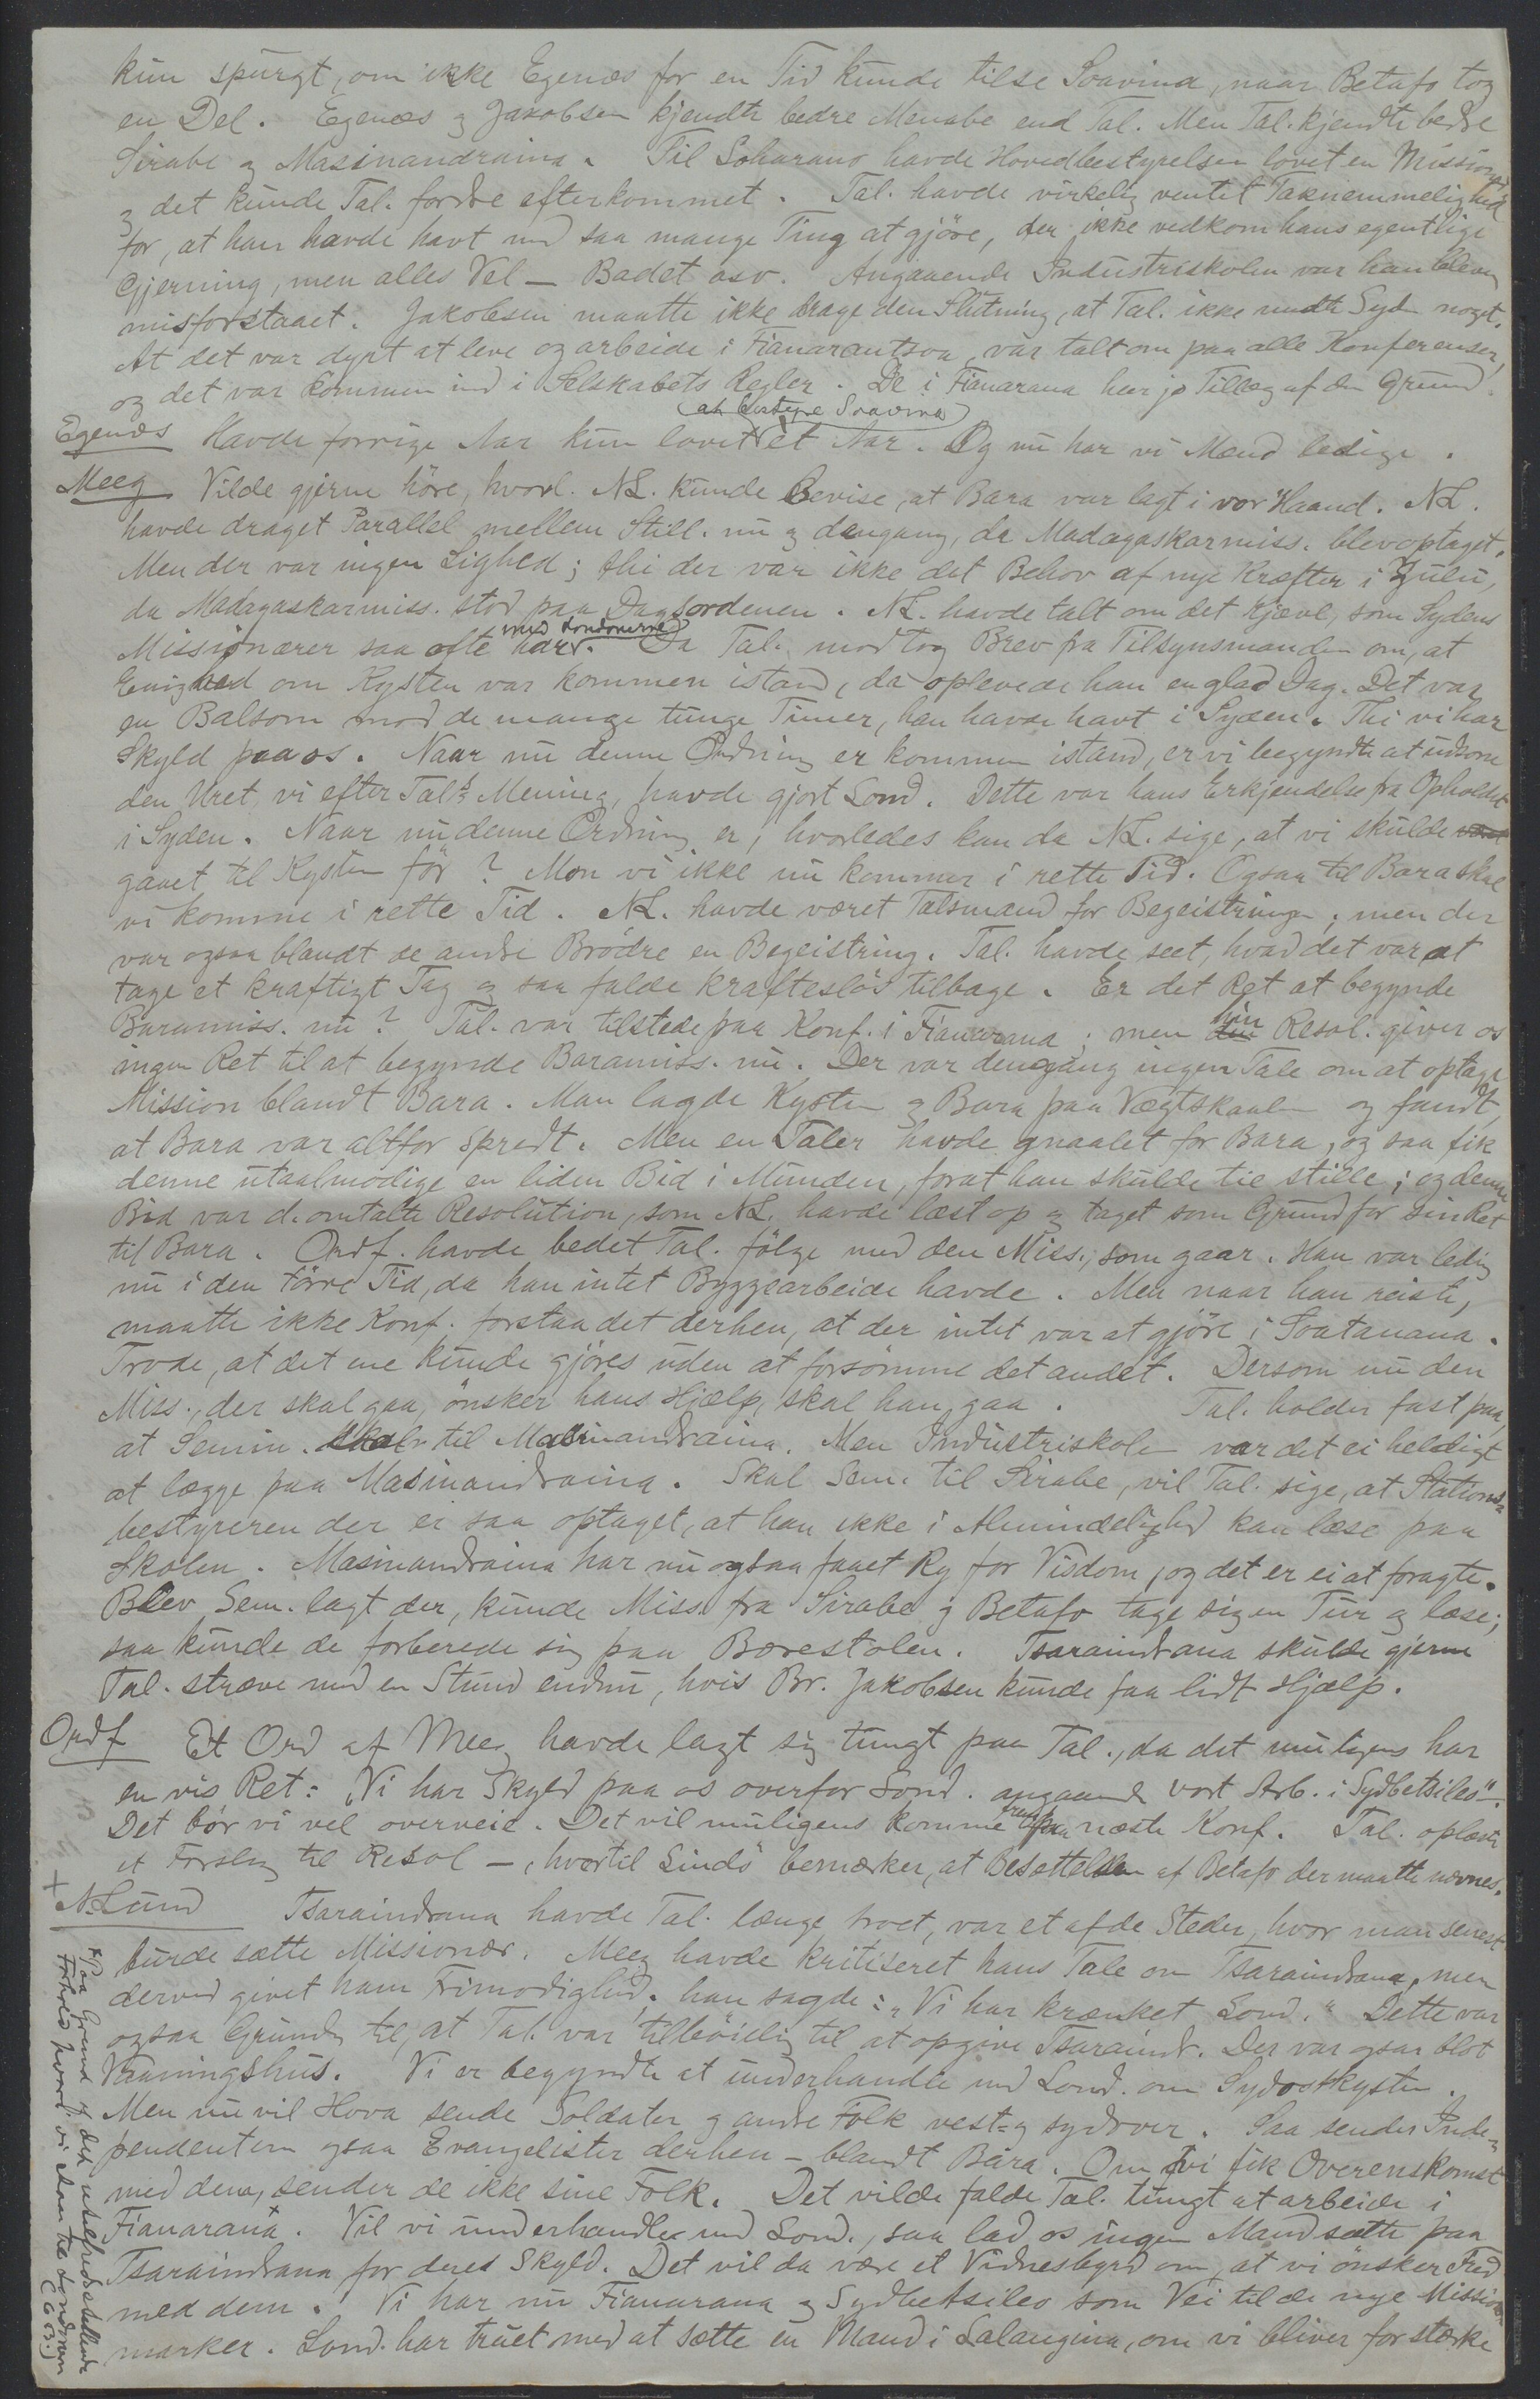 kun spurgt, om ikke Egenæs for en Tid kunde tilse Soavina, naar Betafo tog
en Del. Egenæs og Jakobsen kjendte bedre Menabe end Tal. Men Tal. kjendte bedre
Sirabe og Masinandraina. Til Soharano havde Hovedbestyrelsen lovet en Missionær
og det kunde Tal. fordre efterkommet. Tal. havde virkelig ventet Taknemmelighed
for, at han havde havt med saa mange Ting at gjöre, der ikke vedkom hans egentlige
Gjerning, men alles Vel — Badet osv. Angaaende Industriskolen var han bleven
misforstaaet. Jakobsen maatte ikke drage den Slutning, at Tal. ikke undte Syden noget.
At det var dyrt at leve og arbeide i Fianarantsoa, var talt om paa alle Konferenser,
og det var kommen ind i Selskabets Regler. De i Fianarana har jo Tillæg af den Grund.
(at bestyre Soavina)
Egenæs Havde forrige Aar kun lovet et Aar. Og nu har vi Mænd ledige.
Meeg Vilde gjerne höre, hvorl. NL. kunde bevise, at Bara var lagt i vor Haand. NL.
havde draget Parallel mellem Still. nu og dengang, da Madagaskarmiss. blev optaget.
Men der var ingen Lighed; thi der var ikke det Behov af nye Kræfter i Zulu,
da Madagaskarmiss. stod paa Dagsordenen. NL. havde talt om det Kjævl, som Sydens
med Londonerne
Missionærer saa ofte har. Da Tal. modtog Brev fra Tilsynsmanden om, at
Enighed om Kysten var kommen istand, da oplevede han en glad Dag. Det var
en Balsom mod de mange tunge Timer, han havde havt i Syden. Thi vi har
Skyld paa os. Naar nu denne Ordning er kommen istand, er vi begyndte at udsone
den Uret, vi efter Tal.s Mening, havde gjort Lond. Dette var hans Erkjendelse fra Opholdet
i Syden. Naar nu denne Ordning er, hvorledes kan da NL. sige, at vi skulde
gaaet til Kysten för? Mon vi ikke nu kommer i rette Tid. Ogsaa til Bara skal
vi komme i rette Tid. NL. havde været Talsmand for Begeistringen; men der
var ogsaa blandt de andre Brödre en Begeistring. Tal. havde seet, hvad det var at
tage et kraftigt Tag og saa falde kraftesløs tilbage. Er det Ret at begynde
Baramiss. nu? Tal. var tilstede paa Konf. i Fianarana; men hin Resol. giver os
ingen Ret til at begynde Baramiss. nu. Der var dengang ingen Tale om at optage
Mission blandt Bara. Man lagde Kysten og Bara paa Vægtskaalen og fandt,
at Bara var altfor spredt. Men en Taler havde gnaalet for Bara, og saa fik
denne utaalmodige en liden Bid i Munden, forat han skulde tie stille; og denne
Bid var d. omtalte Resolution, som NL. havde læst op og taget som Grund for sin Ret
til Bara. Ordf. havde bedet Tal. fölge med den Miss., som gaar. Han var ledig
nu i den törre Tid, da han intet Byggearbeide havde. Men naar han reiste,
maatte ikke Konf. forstaa det derhen, at der intet var at gjöre i Soatanana.
Trode, at det ene kunde gjöres uden at forsömme det andet. Dersom nu den
Miss., der skal gaa, önsker hans Hjælp, skal han gaa. Tal. holder fast paa,
at Semin. skal til Masinandraina. Men Industriskolen var det ei heldigt
at lægge paa Masinandraina. Skal Sem. til Sirabe, vil Tal. sige, at Stations-
bestyreren der er saa optaget, at han ikke i Almindelighed kan læse paa
Skolen. Masinandraina har nu ogsaa faaet Ry for Visdom, og det er ei at foragte.
Blev Sem. lagt der, kunde Miss. fra Sirabe og Betafo tage sig en Tur og læse;
saa kunde de forberede sig paa Bærestolen. Tsaraindrana skulde gjerne
Tal. stræve med en Stund endnu, hvis Br. Jakobsen kunde faa lidt Hjælp.
Ordf Et Ord af Meeg havde lagt sig tungt paa Tal., da det muligens har
en vis Ret: "Vi har Skyld paa os overfor Lond. angaaende vort Arb. i Sydbetsileo".
Det bör vi vel overveie. Det vil muligens komme frem paa næste Konf. Tal. oplæste
et Forslag til Resol —, hvortil Lindö bemærker, at Besættelsen af Betafo der maatte nævnes.
+ N. Lund Tsaraindrana havde Tal. længe troet, var et af de Steder, hvor man senest
burde sætte Missionær. Meeg havde kritiseret hans Tale om Tsaraindrana, men
derved givet ham Frimodighed; han sagde: "Vi har krænket Lond." Dette var
ogsaa Grunden til, at Tal. var tilböielig til at opgive Tsaraindr. Der var ogsaa blot
Vaaningshus. Vi er begyndte at underhandle med Lond. om Sydostkysten.
Men nu vil Hova sende Soldater og andre Folk vest- og sydover. Saa sender Inde-
pendenterne ogsaa Evangelister derhen — blandt Bara. Om vi fik Overenskomst
med dem, sender de ikke sine Folk. Det vilde falde Tal. tungt at arbeide i
Fianarana. Vil vi underhandle med Lond., saa lad os ingen Mand sætte paa
Tsaraindrana for deres Skyld. Det vil da være et Vidnesbyrd om, at vi önsker Fred
med dem. Vi har nu Fianarana og Sydbetsileo som Vei til de nye Missions-
marker. Lond. har truet med at sætte en Mand i Lalangina, om vi bliver for stærke
Paa Grund af det utilfredsstillende
Forhold, hvori vi staar til Londoner